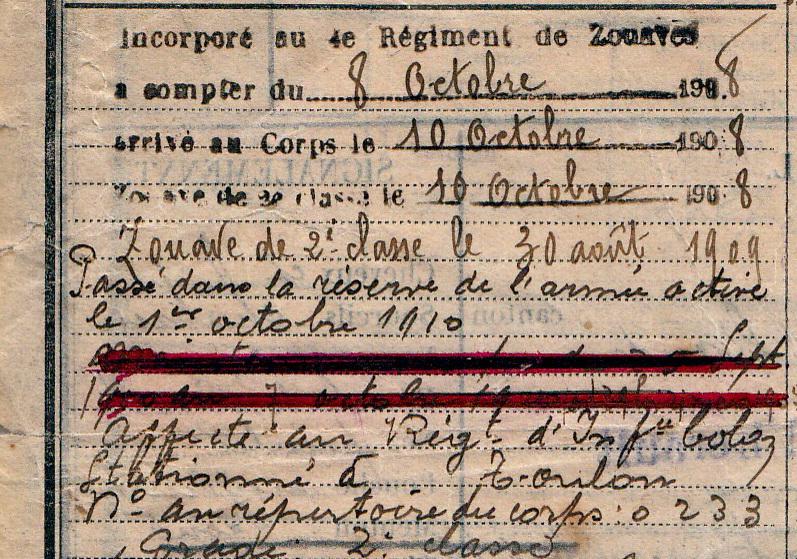 Incorporé au 4e Régiment de Zouaves
a compter du 8 Octobre 1908
arrivé au Corps le 10 Octobre 1908
Zouave de 2e classe le 10 Octobre 1908
Zouave de 2e classe le 30 août 1909
Passé dans la réserve de l'armée active
le 1er octobre 1910
Sept
octobre
Affecté au Régt. d'Infie
Stationné à Toulon
No au répertoire du corps : 0 233
Grade 2e classe